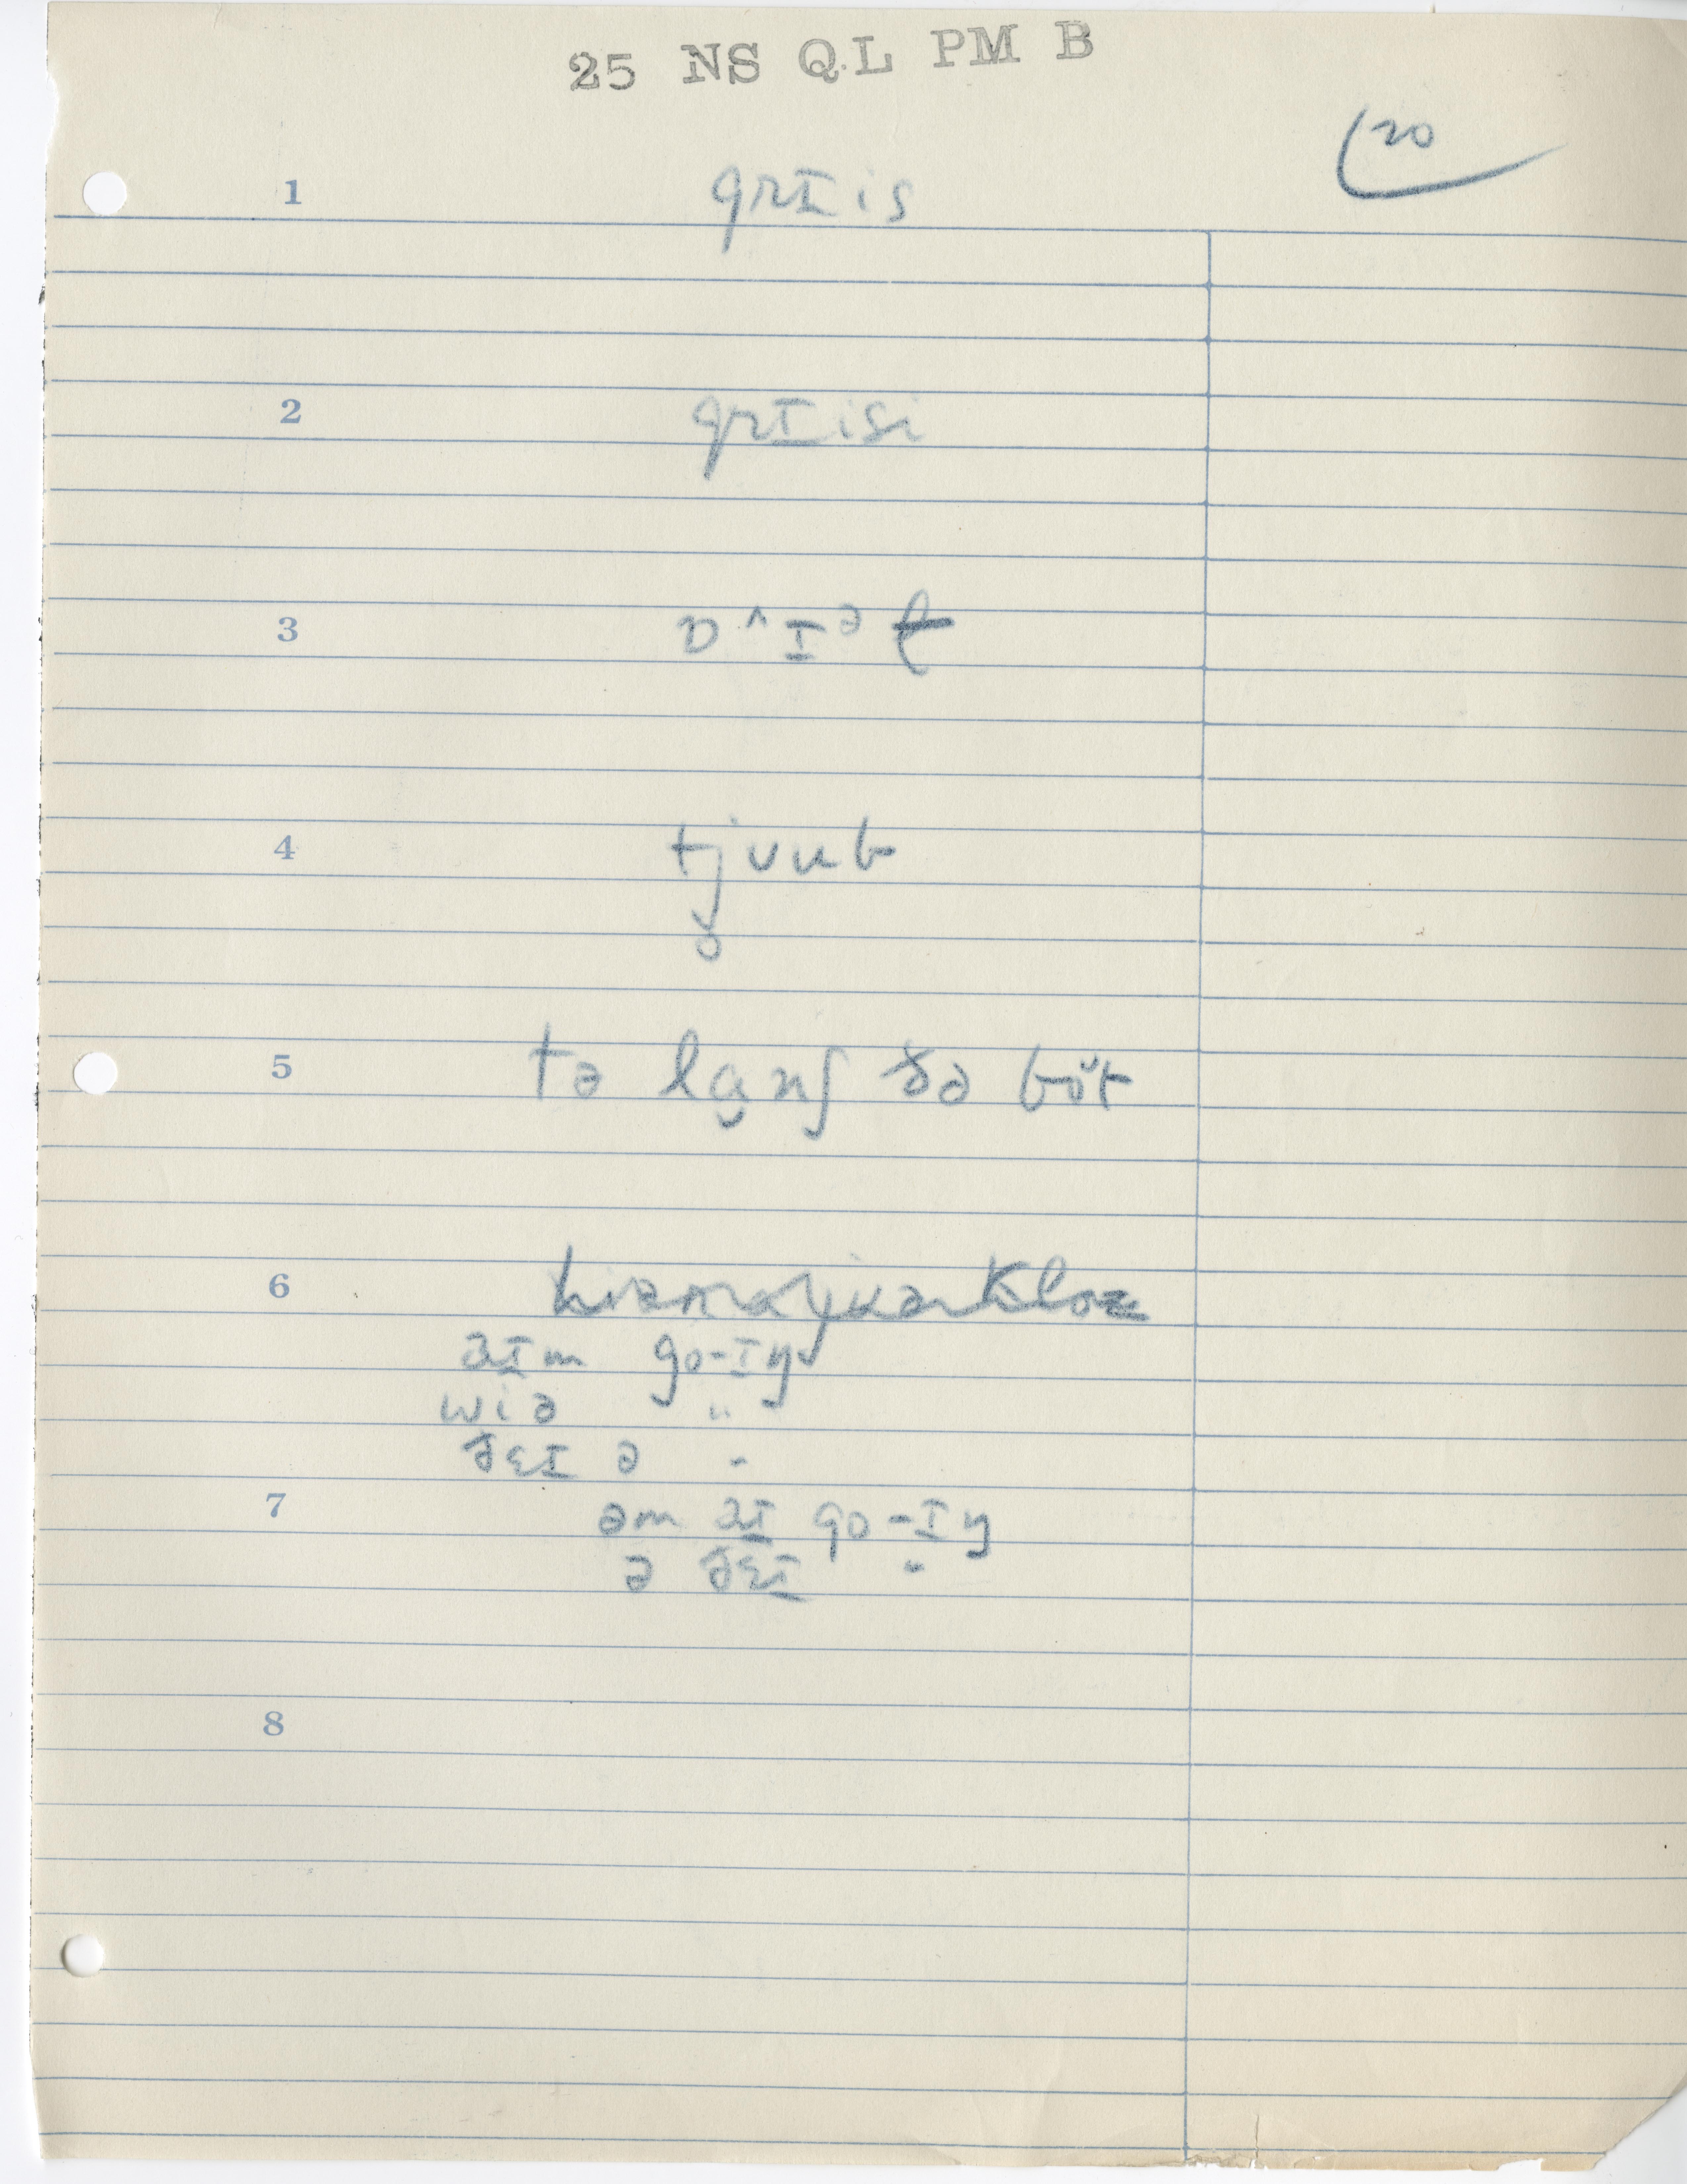 25 NS QL PM B
20
1 grɪis
2 grɪisi
3 ɒ^ɪᵊɫ
4 tjʊub
5 tə lɑnʃ ðə bot
6
aɪm go-ɪŋ
wiə "
ðɛɪ ə "
7 əm aɪ go-ɪŋ
ə ðɛɪ "
8